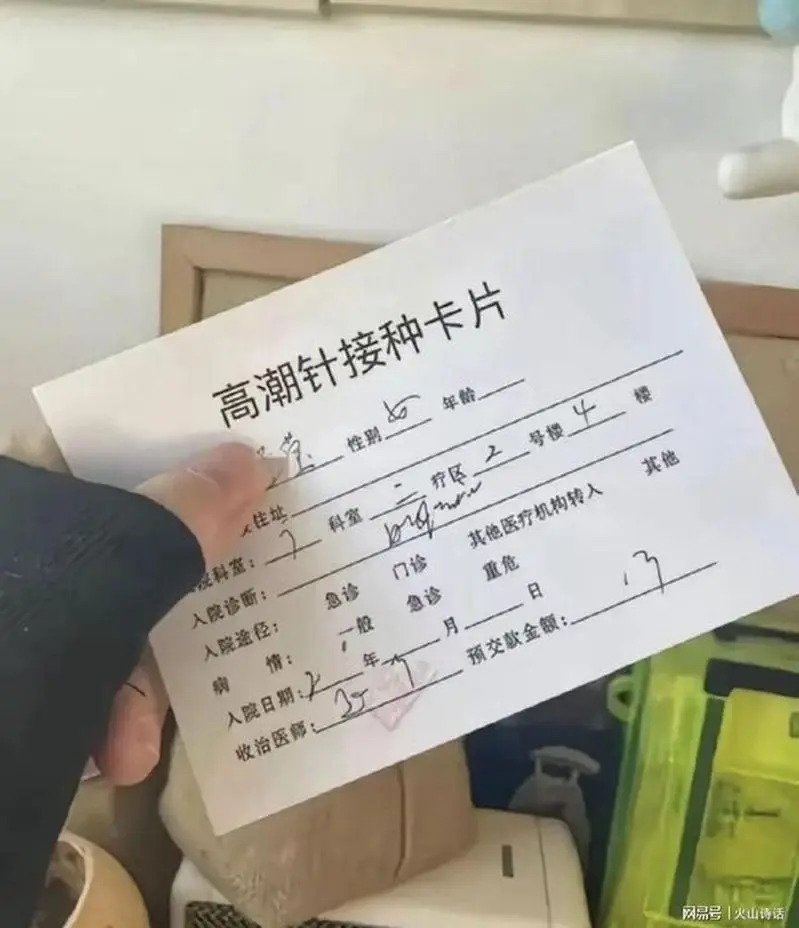 高潮针接种卡片
性别 女 年龄
住址
院科室: 科室 三 疗区 2 号楼 4 楼
入院诊断:
入院途径: 急诊 门诊 其他医疗机构转入 其他
病 情: 一般 急诊 重危
入院日期: 年 月 日
收治医师: 预交款金额:
网易号 | 火山诗话